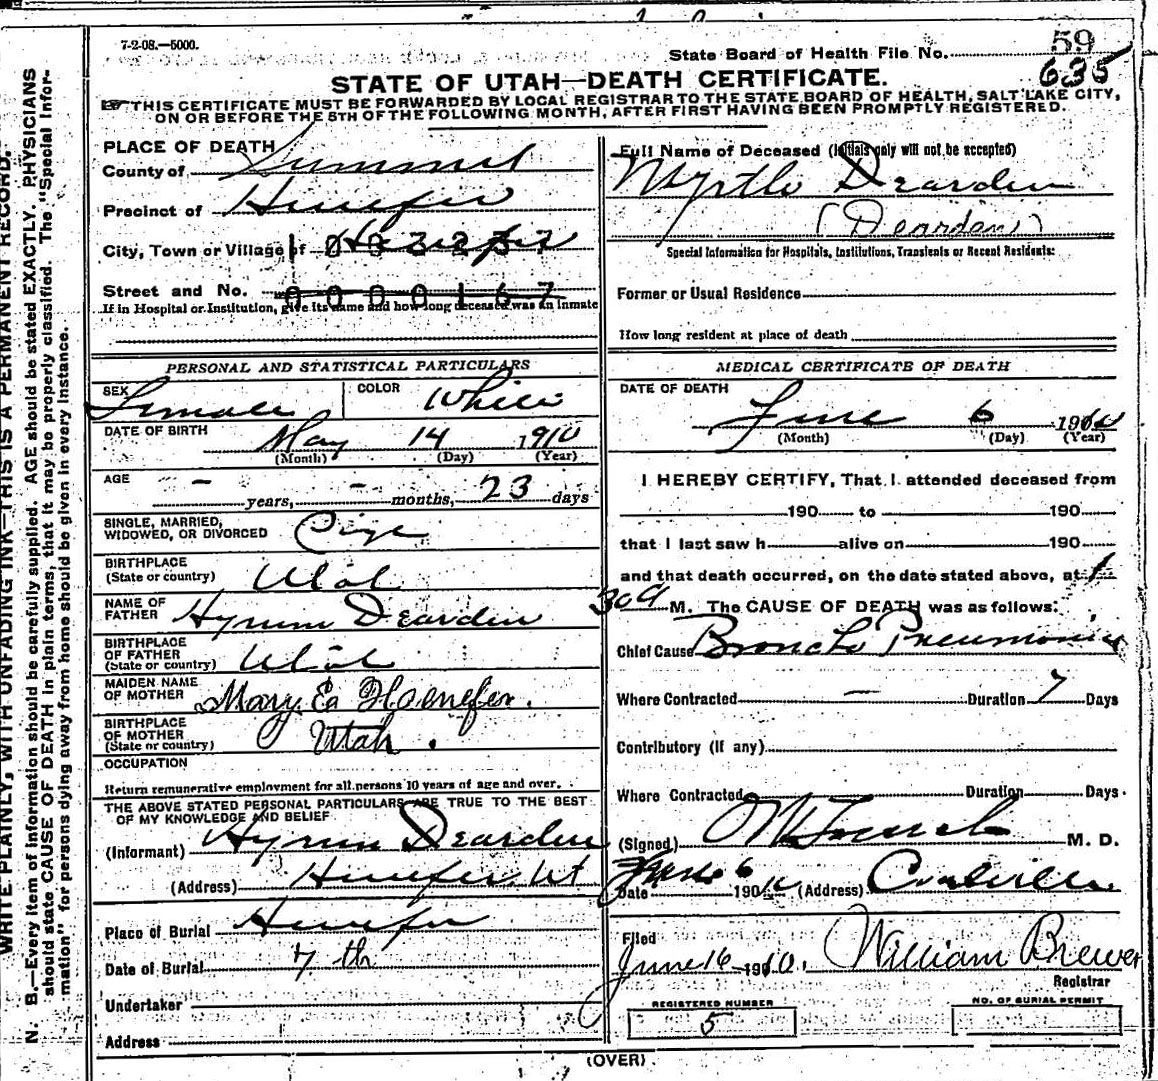 7-2-08.—5000.
State Board of Health File No. 59
635
STATE OF UTAH—DEATH CERTIFICATE.
THIS CERTIFICATE MUST BE FORWARDED BY LOCAL REGISTRAR TO THE STATE BOARD OF HEALTH, SALT LAKE CITY,
ON OR BEFORE THE 5TH OF THE FOLLOWING MONTH, AFTER FIRST HAVING BEEN PROMPTLY REGISTERED.
WRITE PLAINLY, WITH UNFADING INK—THIS IS A PERMANENT RECORD.
N. B.—Every item of information should be carefully supplied. AGE should be stated EXACTLY. PHYSICIANS
should state CAUSE OF DEATH in plain terms, that it may be properly classified. The "Special Infor-
mation" for persons dying away from home should be given in every instance.
PLACE OF DEATH
County of Summit
Precinct of Henefer
City, Town or Village of Henefer
Street and No. 0000167
If in Hospital or Institution, give its name and how long deceased was an inmate
PERSONAL AND STATISTICAL PARTICULARS
SEX Female COLOR White
DATE OF BIRTH May 14 1910
(Month) (Day) (Year)
AGE - years, - months, 23 days
SINGLE, MARRIED,
WIDOWED, OR DIVORCED
BIRTHPLACE
(State or country) Utah
NAME OF
FATHER Hyrum Dearden
BIRTHPLACE
OF FATHER
(State or country) Utah
MAIDEN NAME
OF MOTHER Mary E. Hoenefer.
BIRTHPLACE
OF MOTHER
(State or country) Utah.
OCCUPATION
Return remunerative employment for all persons 10 years of age and over.
THE ABOVE STATED PERSONAL PARTICULARS ARE TRUE TO THE BEST
OF MY KNOWLEDGE AND BELIEF
(Informant) Hyrum Dearden
(Address) Henefer, Ut
Place of Burial Henefer
Date of Burial 7th
Undertaker
Address
Full Name of Deceased (Initials only will not be accepted)
Myrtle Dearden
(Dearden)
Special Information for Hospitals, Institutions, Transients or Recent Residents:
Former or Usual Residence
How long resident at place of death
MEDICAL CERTIFICATE OF DEATH
DATE OF DEATH
June 6 1910
(Month) (Day) (Year)
I HEREBY CERTIFY, That I attended deceased from
190 to 190
that I last saw h alive on 190
and that death occurred, on the date stated above, at 1
30 a M. The CAUSE OF DEATH was as follows:
Chief Cause Broncho Pneumonia
Where Contracted — Duration 7 Days
Contributory (If any)
Where Contracted Duration Days.
(Signed) M. D.
June 6
Date 190 10 (Address) Coalville
Filed
June 16 1910. William Brewer
Registrar
REGISTERED NUMBER
5
NO. OF BURIAL PERMIT
(OVER)